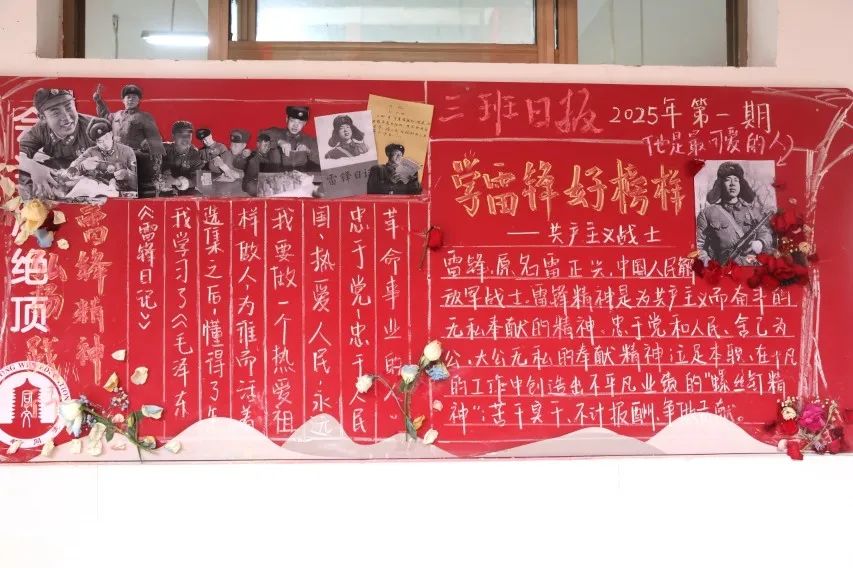 三班日报 2025年第一期
(他是最可爱的人)
学雷锋好榜样
——共产主义战士
雷锋,原名雷正兴,中国人民解
放军战士,雷锋精神是为共产主义而奋斗的
无私奉献的精神、忠于党和人民、舍己为
公、大公无私的奉献精神;立足本职、在平凡
的工作中创造出不平凡业绩的“螺丝钉精
神”;苦干实干、不计报酬、争做贡献。
雷锋日记
绝顶
弘扬
雷锋精神
《雷锋日记》
我学习了《毛泽东
选集之后,懂得了
样做人,为谁而活着
我要做一个热爱祖
国、热爱人民,永远
忠于党 忠于人民
革命事业的人